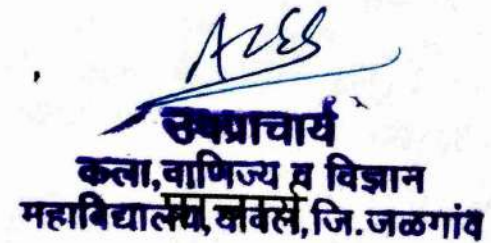 उपप्राचार्य
कला,वाणिज्य व विज्ञान
महाविद्यालय, यावल,जि.जळगांव